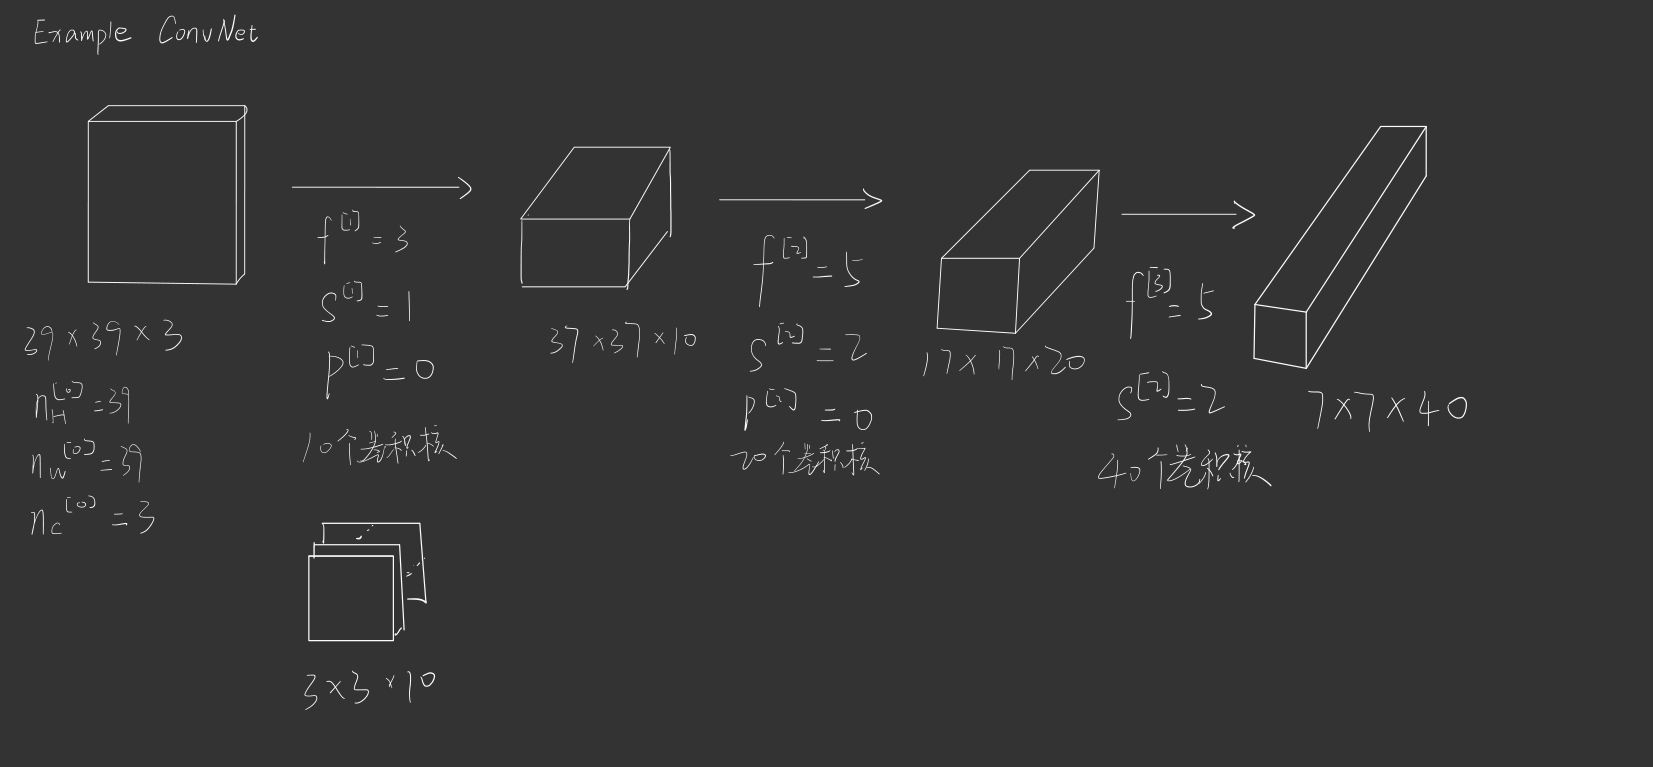 Example ConvNet
39×39×3
n_H^[0]=39
n_W^[0]=39
n_c^[0]=3
f^[1]=3
s^[1]=1
p^[1]=0
10个卷积核
3×3×10
37×37×10
f^[2]=5
s^[2]=2
p^[2]=0
20个卷积核
17×17×20
f^[3]=5
s^[2]=2
40个卷积核
7×7×40